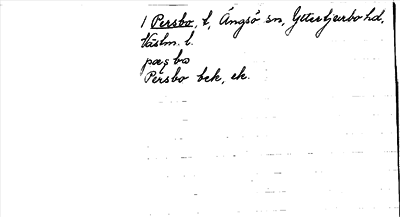 1 Persbo, l, Ängsö sn, Yttertjurbo hd,
Västm. l.
pæsbo
Persbo bek, ek.